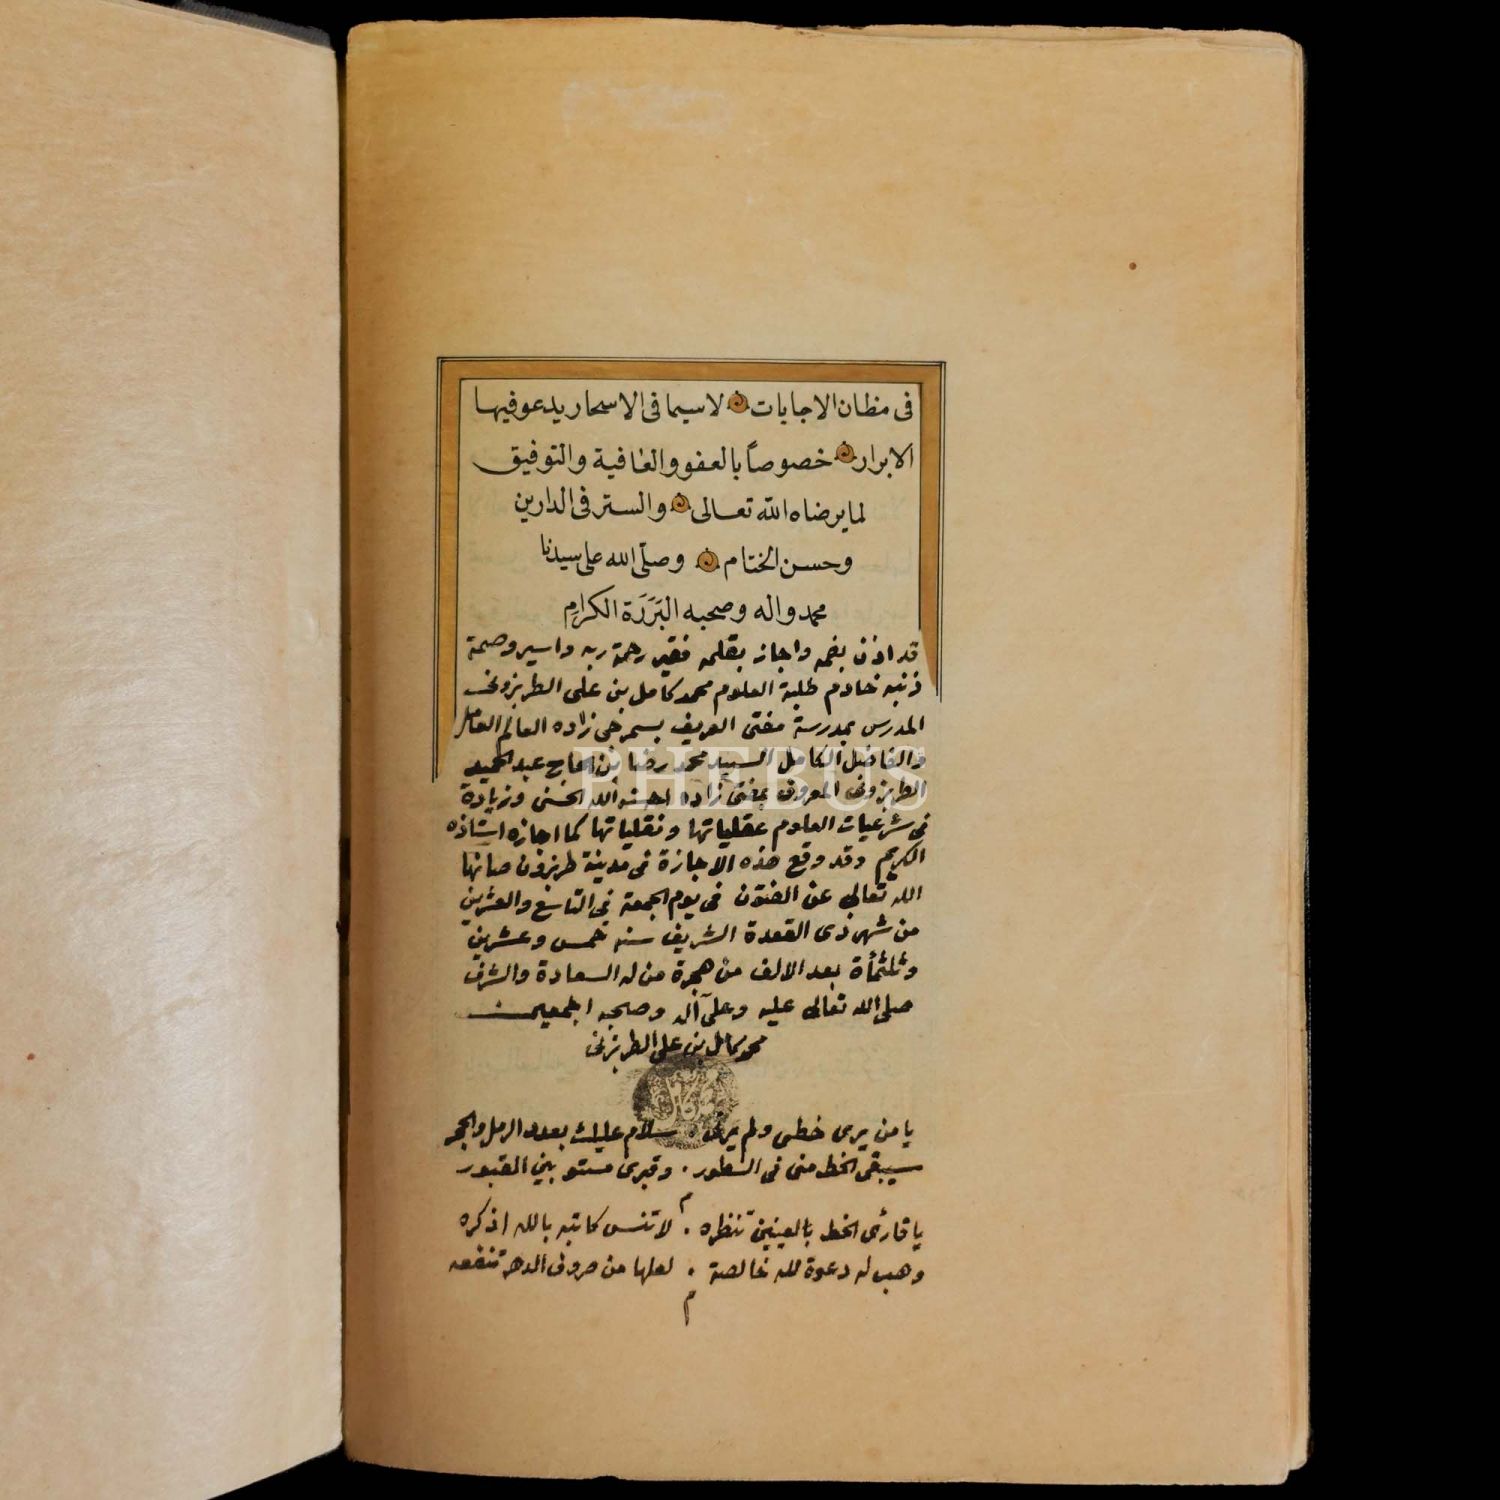 فى مظان الاجابات لاسيما فى الاسحار يدعو فيها
الابرار خصوصاً بالعفو والعافية والتوفيق
لما يرضاه الله تعالى والستر فى الدارين
وحسن الختام وصلى الله على سيدنا
محمد واله وصحبه البَرَرَة الكرامِ
قد اذن بفمه واجاز بقلمه فقير رحمة ربه واسير وصمة
ذنبه خادم طلبة العلوم محمد كامل بن على الطربزونى
المدرس بمدرسة مفتى العريف زاده العالم العامل
والفاضل الكامل السيد محمد رضا بن الحاج عبد الحميد
الطربزونى المعروف بمفتى زاده الله الحسنى وزيادة
فى شرعيات العلوم عقلياتها ونقلياتها كما اجازه استاذه
الكريم وقد وقع هذه الاجازة فى مدينة طربزون صانها
الله تعالى عن الفتون فى يوم الجمعة فى التاسع والعشرين
من شهر ذى القعدة الشريف سنه خمس وعشرين
وثلثمأة بعد الالف من هجرة من له السعادة والشرف
صلى الله تعالى عليه وعلى آله وصحبه اجمعين
محمد كامل بن على الطربزونى
يا من يرى خطى ولم يرنى . سلام عليك بعدد الرمل والحجر
سيبقى الخط منى فى السطور . وقبرى مستو بين القبور
م
يا قارئ الخط بالعينين تنظره . لا تنس كاتبه بالله اذكره
وهب له دعوة لله خالصة . لعلها من صروف الدهر تنفعه
م
PHEBUS